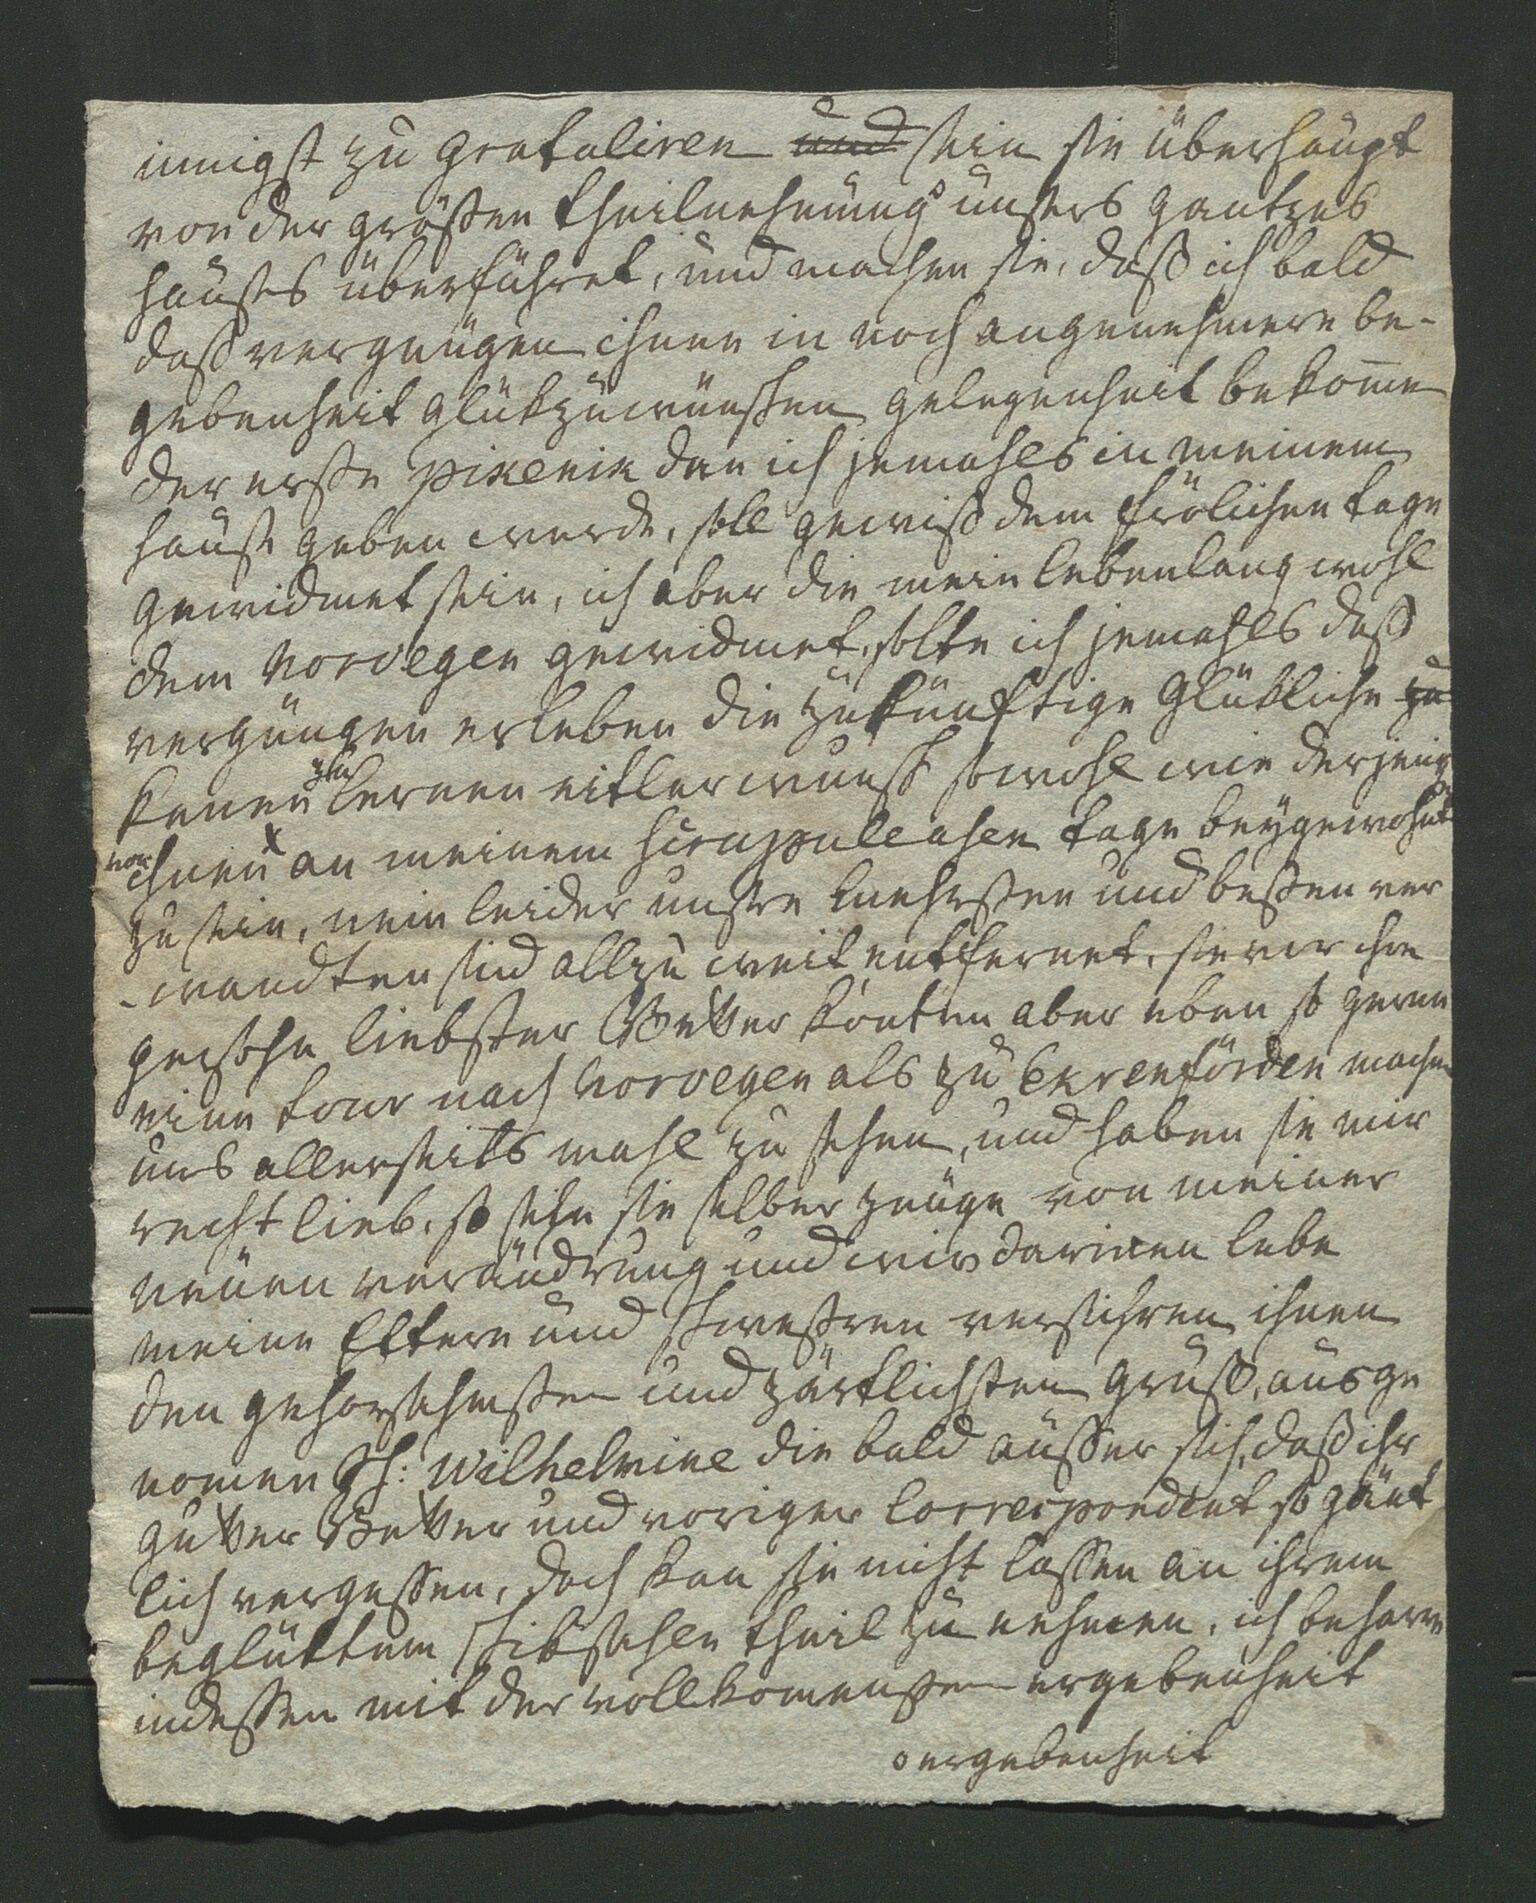 innigst zu gratuliren und sein sie überhaupt
von der größen theilnehmung unsers gantzes
hauses überführet, und machen sie, daß ich bald
daß vergnügen ihnen in noch angenehmere be-
gebenheit glükzuwünschen gelegenheit bekomme
der erste pikenik den ich jemahls in meinem
hause geben werde, soll gewiß dem frölichen tage
gewidmet sein, ich aber die mein lebenlang wohl
dem Norvegen gewidmet, solte ich jemahls daß
vergüngen erleben die zukünftige glükliche zu
kenen zu lernen eitler wunsch sowohl wie derjenige
von ihnen an meinem tage beygewohnt
zu sein, nein leider unsre und besten ver
-wandten sind allzu weit entfernet, sie vor ihre
persohn liebster Vetter könten aber eben so geren
eine tour nach Norvegen als zu Ekrenförden machen
uns allerseits mahl zu sehen, und haben sie mir
recht lieb, so sehn sie selber zeuge von meiner
neuen verändrung und wie darinen lebe
meine Eltern und schwestren versichren ihnen
den gehorsahmsten und zärtlichsten gruß, ausge
nomen Wilhelmine die bald ausser sich, daß ihr
gutter Vetter und voriger Correspondent so gänt
lich vergessen, doch kan sie nicht lassen an ihrem
beglüktem schiksahle theil zu nehmen, ich beharre
indessen mit der vollkomensten ergebenheit
o ergebenheit